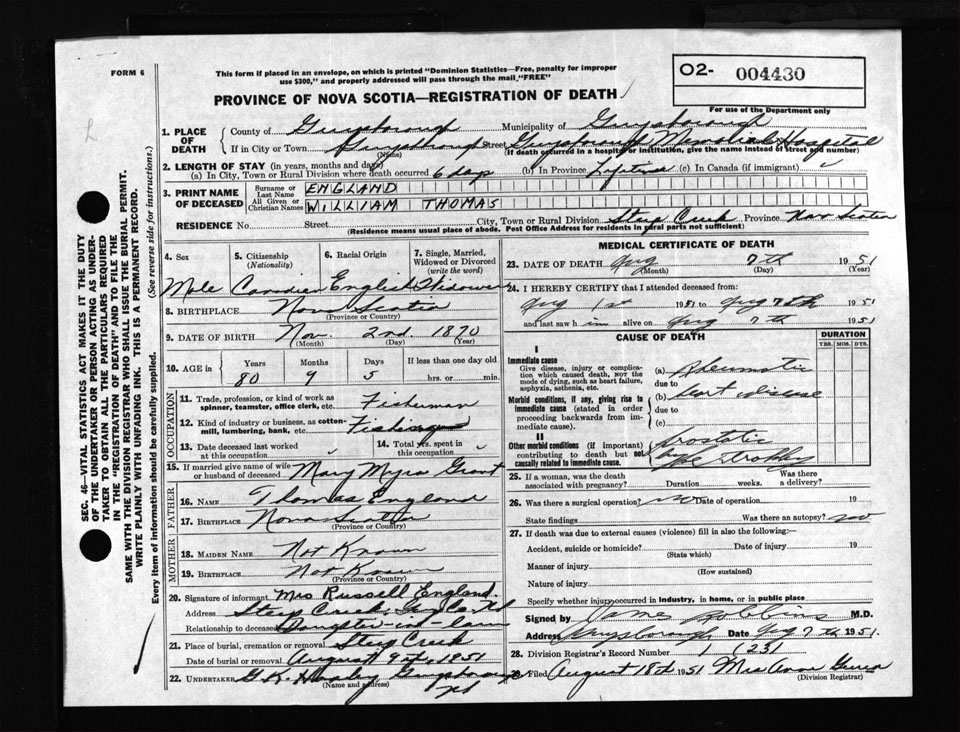 FORM 6
This form if placed in an envelope, on which is printed "Dominion Statistics—Free, penalty for improper
use $300," and properly addressed will pass through the mail "FREE"
O2- 004430
For use of the Department only
PROVINCE OF NOVA SCOTIA—REGISTRATION OF DEATH
SEC. 46—VITAL STATISTICS ACT MAKES IT THE DUTY
OF THE UNDERTAKER OR PERSON ACTING AS UNDER-
TAKER TO OBTAIN ALL THE PARTICULARS REQUIRED
IN THE "REGISTRATION OF DEATH" AND TO FILE THE
SAME WITH THE DIVISION REGISTRAR WHO SHALL ISSUE THE BURIAL PERMIT.
WRITE PLAINLY WITH UNFADING INK. THIS IS A PERMANENT RECORD.
Every item of information should be carefully supplied. (See reverse side for instructions.)
1. PLACE OF DEATH
County of Guysborough Municipality of Guysborough
If in City or Town Guysborough Street Guysborough Memorial Hospital
(Name) (If death occurred in a hospital or institution, give the name instead of street and number)
2. LENGTH OF STAY (in years, months and days)
(a) In City, Town or Rural Division where death occurred 6 days (b) In Province Lifetime (c) In Canada (if immigrant)
3. PRINT NAME OF DECEASED
Surname or Last Name ENGLAND
All Given or Christian Names WILLIAM THOMAS
RESIDENCE No. Street City, Town or Rural Division Steep Creek Province Nova Scotia
(Residence means usual place of abode. Post Office Address for residents in rural parts not sufficient)
4. Sex 5. Citizenship (Nationality) 6. Racial Origin 7. Single, Married, Widowed or Divorced (write the word)
Male Canadian English Widower
8. BIRTHPLACE Nova Scotia
(Province or Country)
9. DATE OF BIRTH Nov. 2nd. 1870
(Month) (Day) (Year)
10. AGE in Years Months Days If less than one day old
80 9 5 hrs. or min.
OCCUPATION
11. Trade, profession, or kind of work as spinner, teamster, office clerk, etc. Fisherman
12. Kind of industry or business, as cotton-mill, lumbering, bank, etc.
13. Date deceased last worked at this occupation
14. Total yrs. spent in this occupation
15. If married give name of wife or husband of deceased Mary Myra Grant
FATHER
16. NAME Thomas England
17. BIRTHPLACE Nova Scotia
(Province or Country)
MOTHER
18. MAIDEN NAME Not Known
19. BIRTHPLACE Not Known
(Province or Country)
20. Signature of informant Mrs Russell England.
Address Steep Creek, Guy Co. NS
Relationship to deceased Daughter-in-law
21. Place of burial, cremation or removal Steep Creek
Date of burial or removal August 9th, 1951
22. UNDERTAKER G.K. Guysborough NS
(Name and address)
MEDICAL CERTIFICATE OF DEATH
23. DATE OF DEATH Aug 7th 1951
(Month) (Day) (Year)
24. I HEREBY CERTIFY that I attended deceased from:
Aug 1st 1951 to Aug 7th 1951
and last saw him alive on Aug 7th 1951
CAUSE OF DEATH
DURATION
YRS. MOS. DYS.
I
Immediate cause
Give disease, injury or complication which caused death, not the mode of dying, such as heart failure, asphyxia, asthenia, etc.
(a) Rheumatic
due to
Morbid conditions, if any, giving rise to immediate cause (stated in order proceeding backwards from immediate cause).
(b) heart disease
due to
(c)
II
Other morbid conditions (if important) contributing to death but not causally related to immediate cause.
Prostatic
hypertrophy
25. If a woman, was the death associated with pregnancy? Duration weeks. Was there a delivery?
26. Was there a surgical operation? no Date of operation 19
State findings Was there an autopsy? no
27. If death was due to external causes (violence) fill in also the following:—
Accident, suicide or homicide? Date of injury 19
(State which)
Manner of injury
(How sustained)
Nature of injury
Specify whether injury occurred in industry, in home, or in public place
Signed by M.D.
Address Guysborough Date Aug 7th 1951.
28. Division Registrar's Record Number 1 (23)
29. Filed August 18th 1951 Mrs
(Division Registrar)